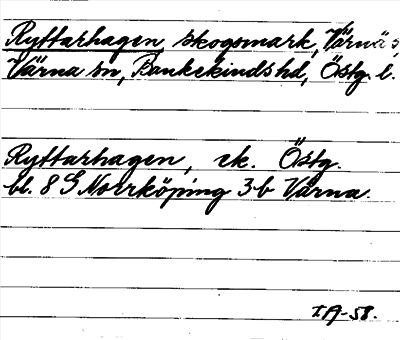 Ryttarhagen skogsmark, Värnäs,
Värna sn, Bankekinds hd, Östg. l.
Ryttarhagen, ek. Östg.
bl. 8 G Norrköping 3b Värna.
IA-58.